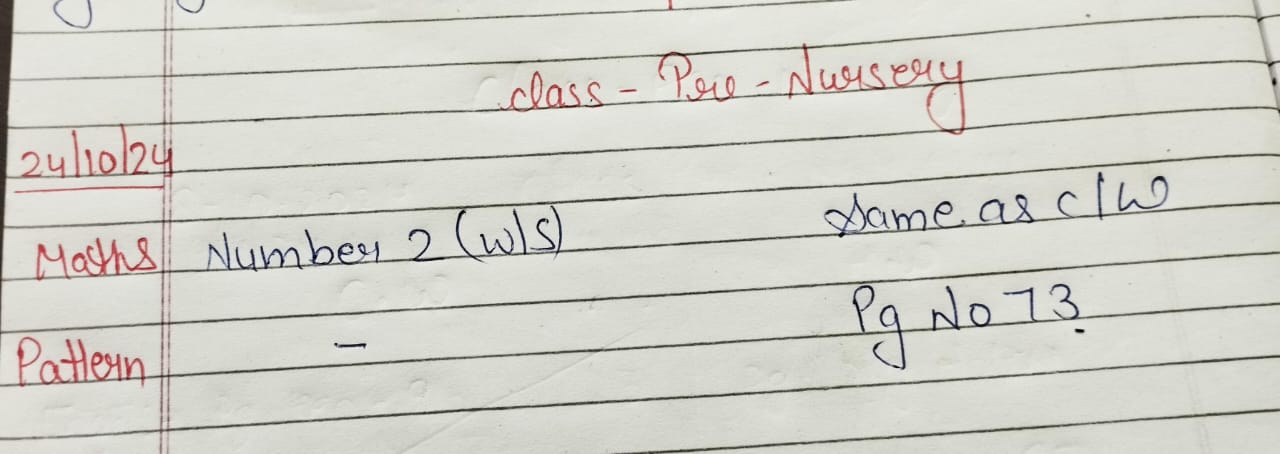 Class - Pre - Nursery
24/10/24
Maths Number 2 (w/s) Same as c/w
Pattern - Pg No 73.